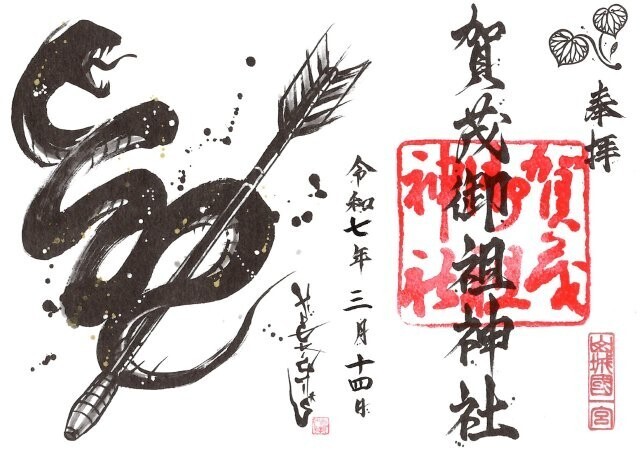 奉拝
賀茂御祖神社
賀茂
御祖
神社
山城國一宮
令和七年 三月十四日